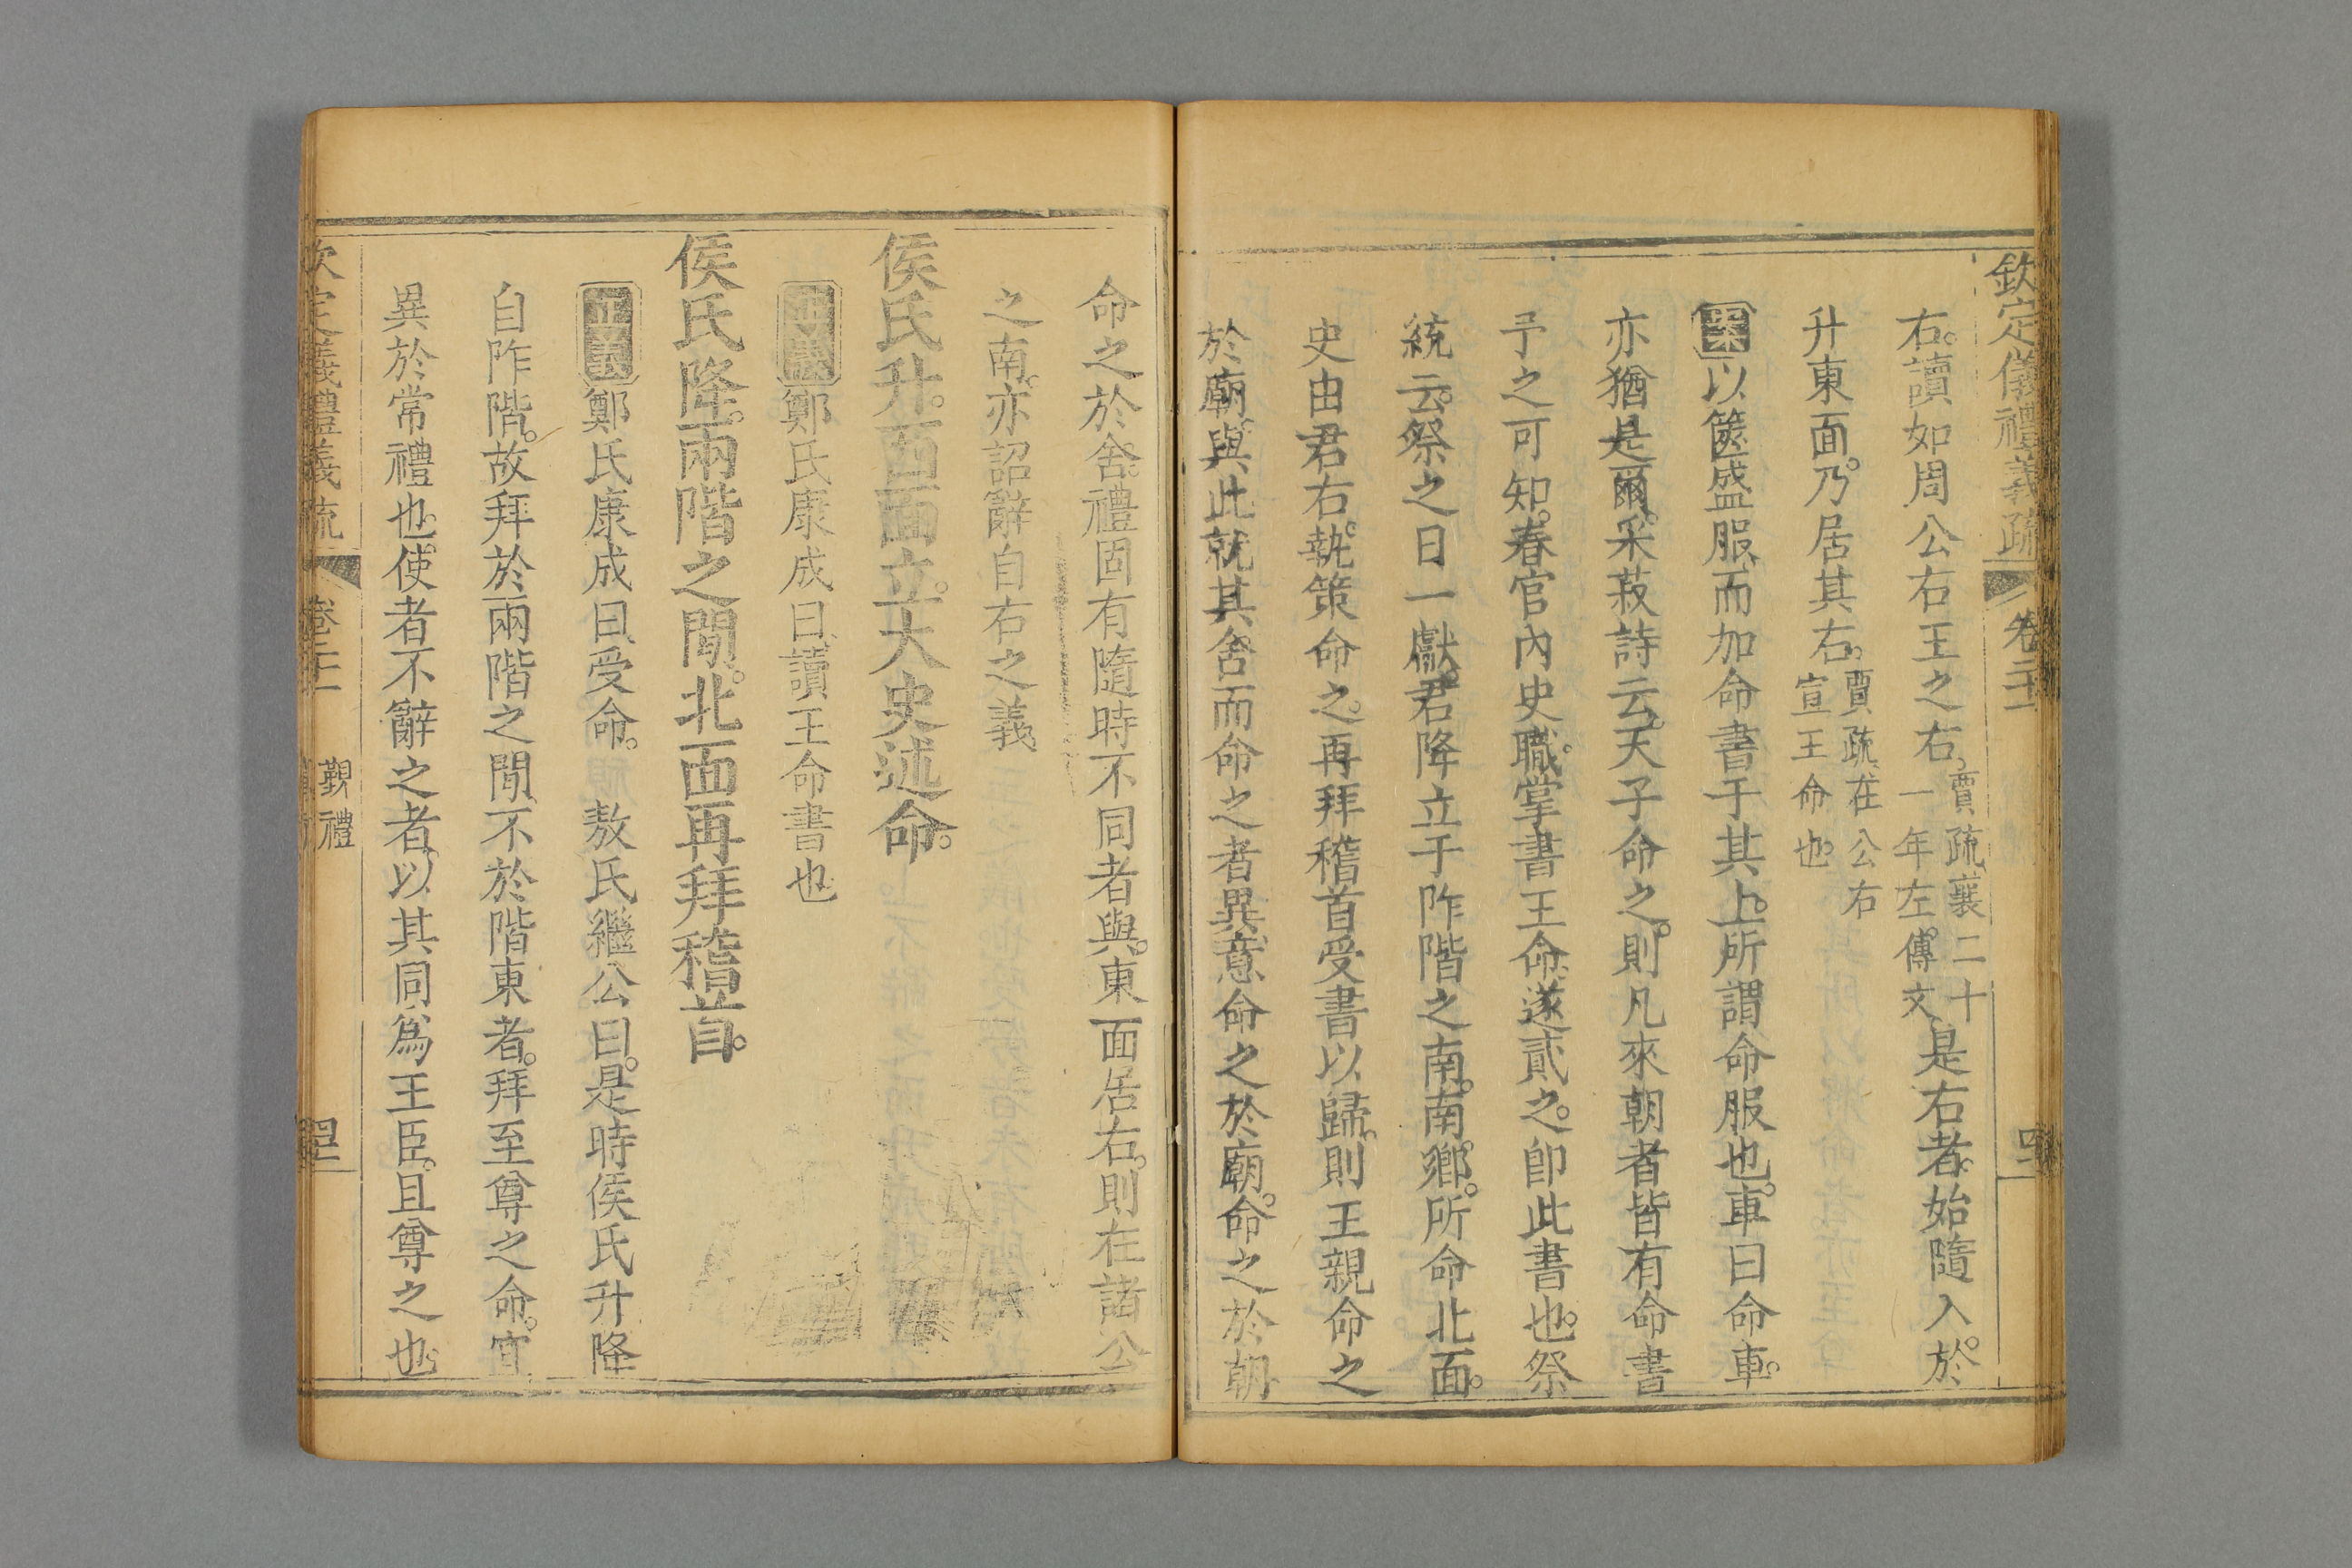 欽定儀禮義疏 卷二十
右。讀如周公右王之右、賈疏襄二十一年左傳文是右者。始隨入。於
升東面。乃居其右。賈疏在公右宣王命也
案以篋盛服、而加命書于其上。所謂命服也。車曰命車。
亦猶是爾。采菽詩云。天子命之。則凡來朝者皆有命書
予之可知。春官內史職。掌書王命、遂貳之。卽此書也。祭
統云。祭之日一獻。君降立于阼階之南。南鄉。所命北面。
史由君右。執策命之。再拜稽首受書以歸。則王親命之
於廟。與此就其舍而命之者異、意命之於廟。命之於朝
命之於舍。禮固有隨時不同者與。東面居右。則在諸公
之南。亦詔辭自右之義
侯氏升。西面立。大史述命。
正義鄭氏康成曰、讀王命書也
侯氏降。兩階之閒。北面再拜稽首。
正義鄭氏康成曰、受命。 敖氏繼公曰。是時侯氏升降
自阼階。故拜於兩階之閒、不於階東者。拜至尊之命。宜
異於常禮也。使者不辭之者、以其同爲王臣。且尊之也。
欽定儀禮義疏 卷二十 覲禮